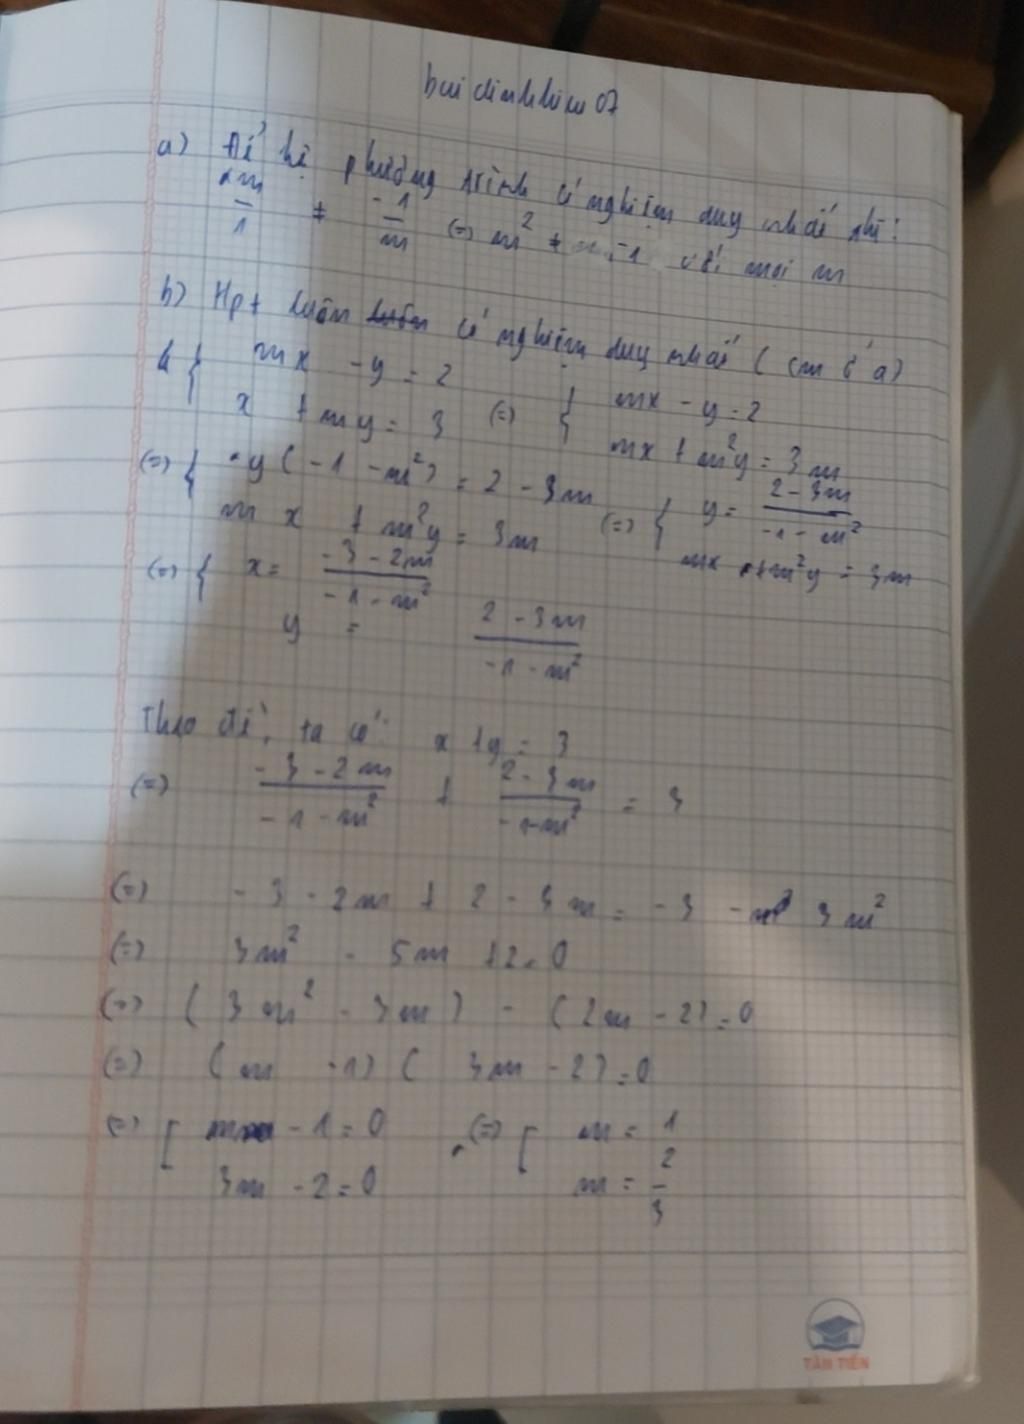 bui dinh hieu 07
a) Để hệ phương trình có nghiệm duy nhất thì:
m/1 ≠ -1/m (=) m² ≠ -1 với mọi m
b) Hpt luôn có nghiệm duy nhất ( cm ở a)
{ mx - y = 2 (=) { mx - y = 2
x + my = 3 mx + m²y = 3m
(=) { y ( -1 - m²) = 2 - 3m (=) { y = 2 - 3m / -1 - m²
mx + m²y = 3m mx + m²y = 3m
(=) { x = -3 - 2m / -1 - m²
y = 2 - 3m / -1 - m²
Theo đề, ta có: x + y = 3
(=) -3 - 2m / -1 - m² + 2 - 3m / -1 - m² = 3
(=) -3 - 2m + 2 - 3m = -3 - 3m²
(=) 3m² - 5m + 2 = 0
(=) ( 3m² - 3m ) - ( 2m - 2) = 0
(=) ( m - 1) ( 3m - 2) = 0
(=) [ m - 1 = 0 (=) [ m = 1
3m - 2 = 0 m = 2/3
TÂN TIẾN